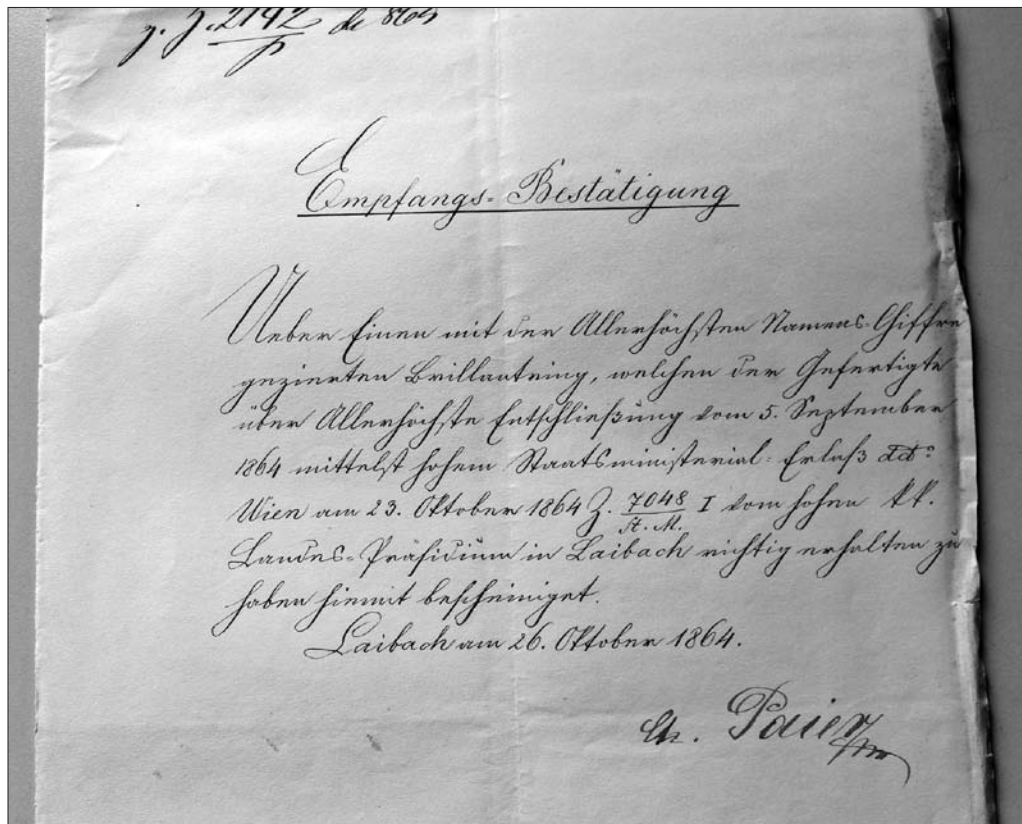 z. Z. 2142/P de 864
Empfangs-Bestätigung
Ueber Einen mit der Allerhöchsten Namens-Chiffre
gezierten Brillantring, welchen der Gefertigte
über Allerhöchste Entschließung vom 5. September
1864 mittelst hohem Staatsministerial-Erlaß dd°
Wien am 23. Oktober 1864 Z. 7048/St. M. I vom hohen kk.
Landes-Präsidium in Laibach richtig erhalten zu
haben hiemit bescheiniget.
Laibach am 26. Oktober 1864.
Paier